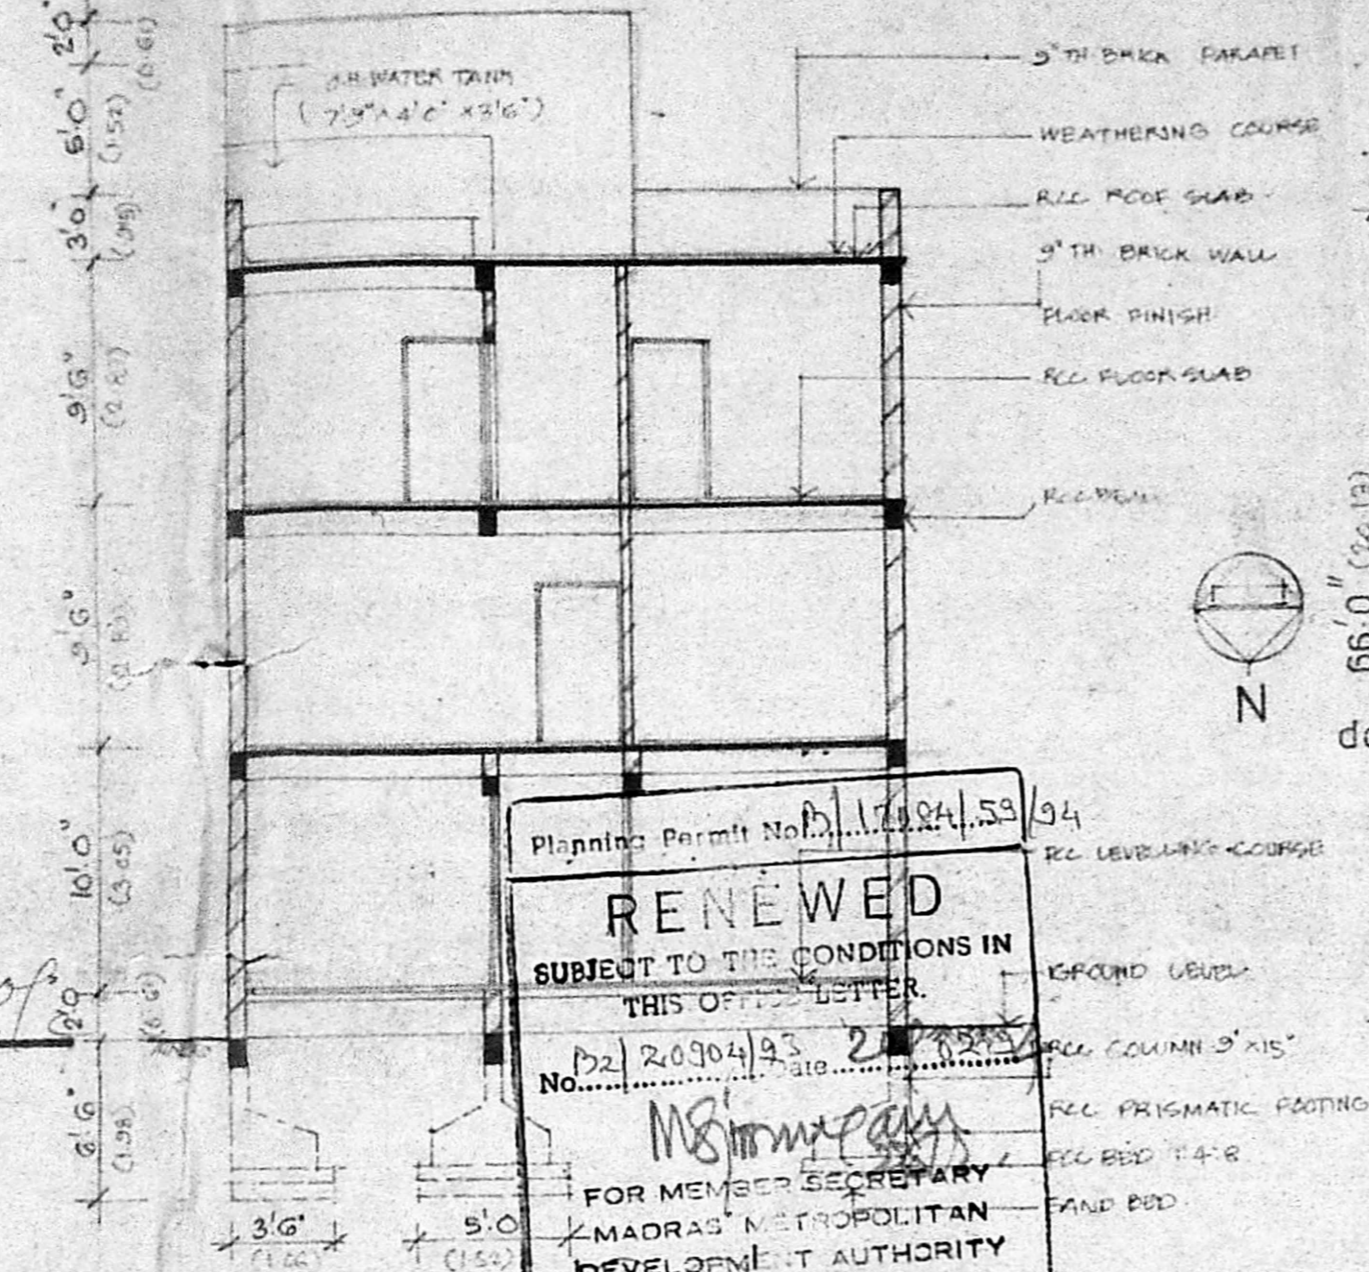 2'0"
(0.61)
5'0"
(1.52)
3'0"
9'6"
9'6"
10'.0"
(3.05)
2'0
6'6"
(1.98)
O.H. WATER TANK
(7'9"x4'0"x3'6")
9" TH BRICK PARAPET
WEATHERING COURSE
RCC ROOF SLAB
9" TH BRICK WALL
FLOOR FINISH
RCC FLOOR SLAB
RCC BEAM
N
66'0"
RCC LEVELLING COURSE
GROUND LEVEL
RCC COLUMN 9"x15"
RCC PRISMATIC FOOTING
PCC BED 1:4:8
SAND BED
3'6"
5'.0
(1.52)
Planning Permit No. /94
RENEWED
SUBJECT TO THE CONDITIONS IN
THIS OFFICE LETTER.
No. B2/20904/93 Date
FOR MEMBER SECRETARY
MADRAS METROPOLITAN
DEVELOPMENT AUTHORITY